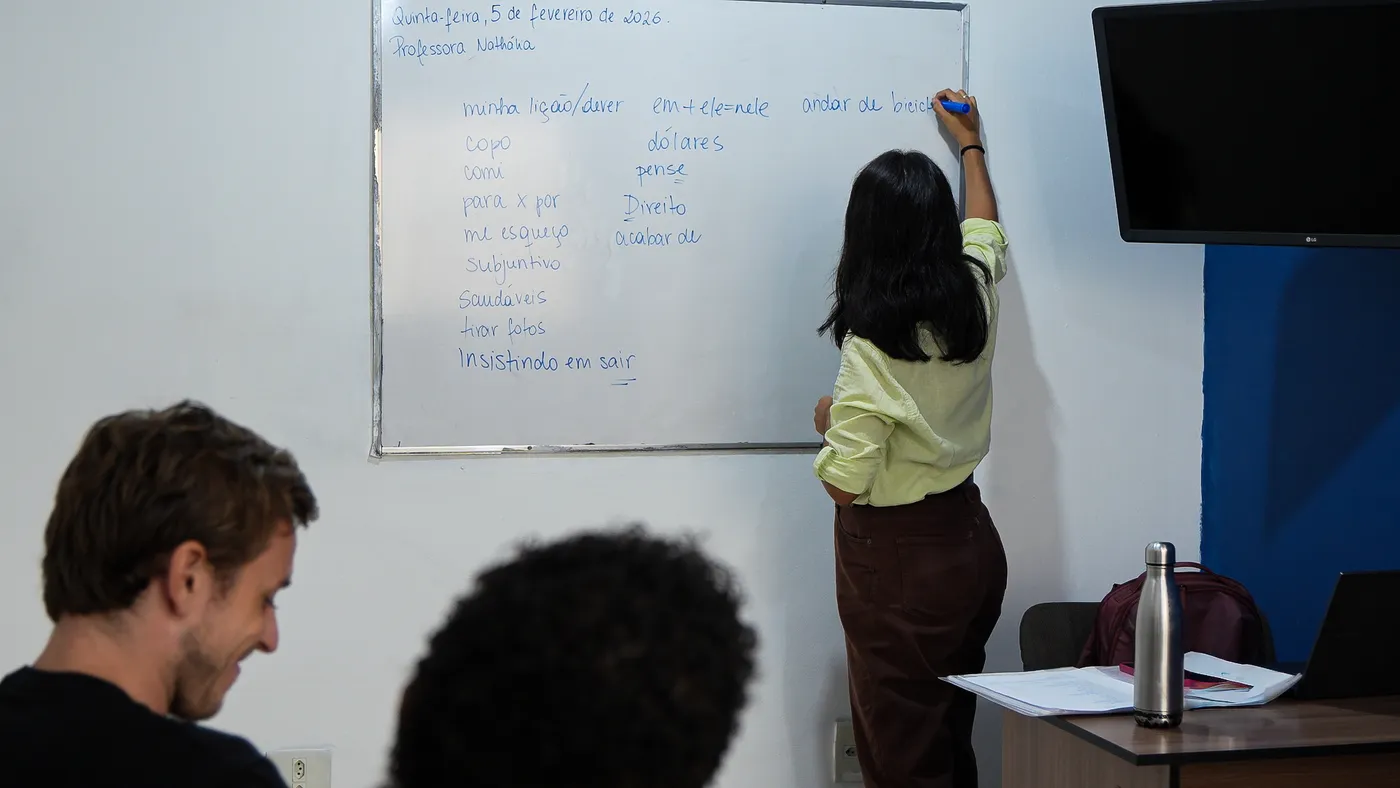 Quinta-feira, 5 de fevereiro de 2026.
Professora Nathália
minha lição/dever
copo
comi
para x por
me esqueço
subjuntivo
saudáveis
tirar fotos
Insistindo em sair
em+ele=nele
dólares
pense
Direito
acabar de
andar de bicicle
LG